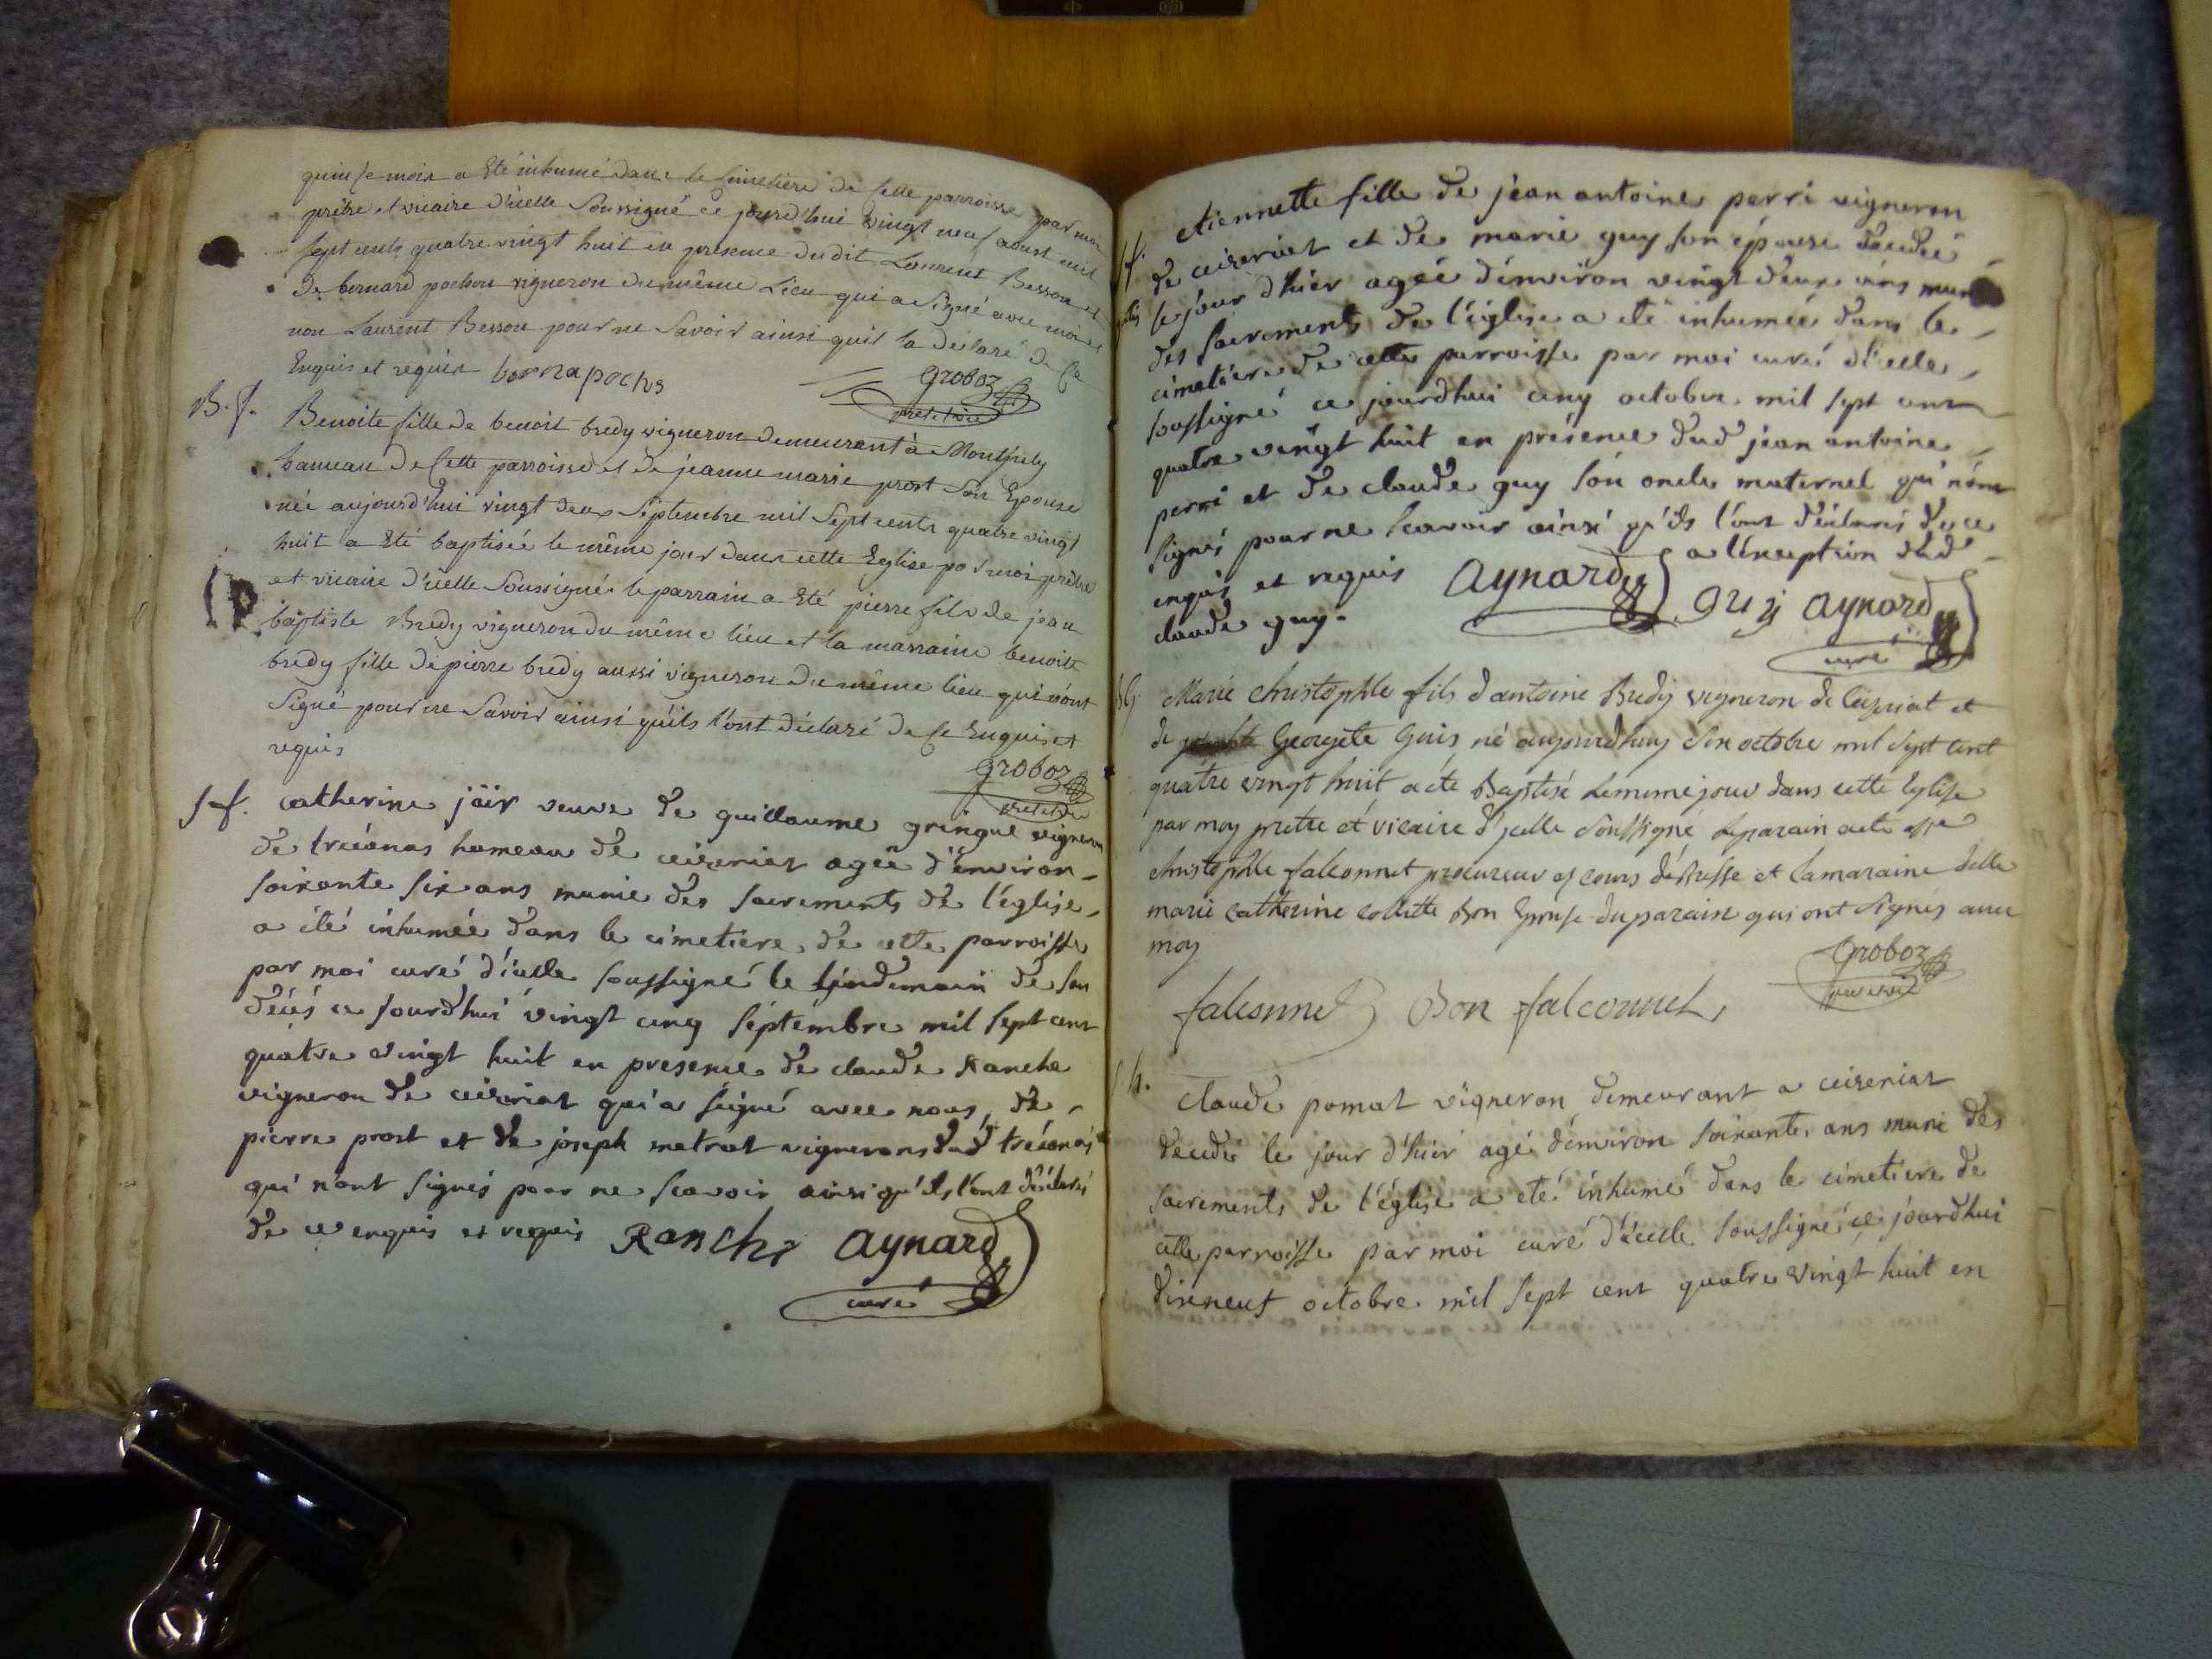 quinse mois a Eté inhumé dans le Cimetière de Cette parroisse par moi
prêtre et vicaire d'icelle Soussigné ce jourd'hui vingt neuf aoust mil
Sept cents quatre vingt huit en presence dudit Laurent Besson et
de bernard pochon vigneron du même Lieu qui a Signé avec moi et
non Laurent Besson pour ne Savoir ainsi quil la declaré de Ce
Enquis et requis bernapochos
Groboz
B. f.
Benoite fille de benoit bredy vigneron demeurant à
hameau de Cette parroisse et de jeanne marie prost Son Epouse
née aujourd'hui vingt deux Septembre mil Sept cents quatre vingt
huit a Eté baptisée le même jour dans cette Eglise par moi prêtre
et vicaire d'icelle Soussigné le parrain a Eté pierre fils de jean
baptiste Bredy vigneron du même lieu et la marraine benoite
bredy fille de pierre bredy aussi vigneron du même lieu qui n'ont
Signé pour ne Savoir ainsi qu'ils l'ont déclaré de Ce Enquis et
requis
Groboz
S f. catherine jair veuve de guillaume gringue vigneron
de treconas hameau de ceizeriat agée d'environ
soixante six ans munie des sacrements de l'église
a été inhumée dans le cimetiere de cette parroisse
par moi curé d'icelle soussigné le lendemain de son
décés ce jourdhui vingt cinq septembre mil sept cent
quatre vingt huit en presence de claude Ranche
vigneron de ceizeriat qui a signé avec nous, de
pierre prost et de joseph metrat vignerons dud treconas
qui n'ont signés pour ne scavoir ainsi qu'ils l'ont déclaré
de ce enquis et requis Ranche Aynard
curé
S f. etiennette fille de jean antoine perri vigneron
de ceizeriat et de marie guy son épouse décédée
le jour d'hier agée d'environ vingt deux ans
des sacrements de l'église a eté inhumée dans le
cimetiere de cette parroisse par moi curé d'icelle
soussigné ce jourdhui cinq octobre mil sept cent
quatre vingt huit en présence dud jean antoine
perri et de claude guy son oncle maternel qui n'ont
signés pour ne scavoir ainsi qu'ils l'ont déclaré de ce
enquis et requis Aynard a léxception dud
claude guy. guy Aynard
curé
Marie christophle fils d'antoine Bredy vigneron de Ceizeriat et
de Georgete Guis né aujourdhuy six octobre mil sept cent
quatre vingt huit a eté Baptisé le meme jour dans cette Eglise
par moy prettre et vicaire d'ycelle Soussigné le parain a eté
christophle falconnet procureur es cours de Bresse et la maraine delle
marie catherine collette Bon Epouse du parain qui ont Signés avec
moy
Groboz
falconnet Bon falconnet
S. h.
claude pomat vigneron demeurant a ceizeriat
décédé le jour d'hier agé d'environ soixante ans muni des
sacrements de l'église a eté inhumé dans le cimetiere de
cette parroisse par moi curé d'icelle soussigné ce jourdhui
dixneuf octobre mil sept cent quatre vingt huit en